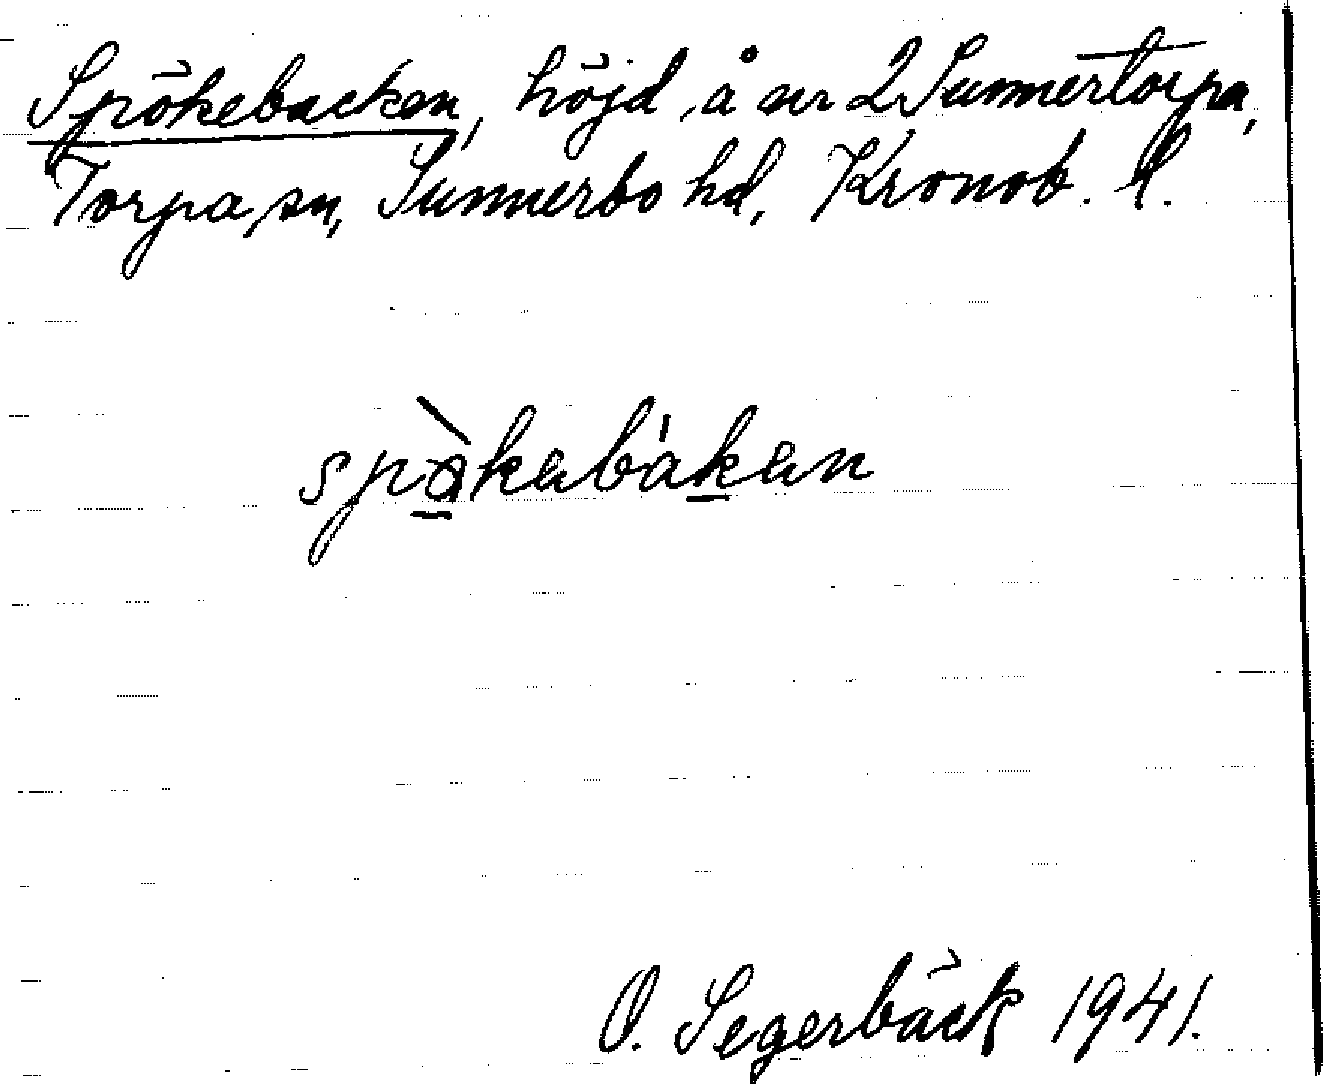 Spökebacken, höjd å nr 2 Sunnertorpa,
Torpa sn, Sunnerbo hd, Kronob. l.
spø̀kabákan
O. Segerbäck 1941.